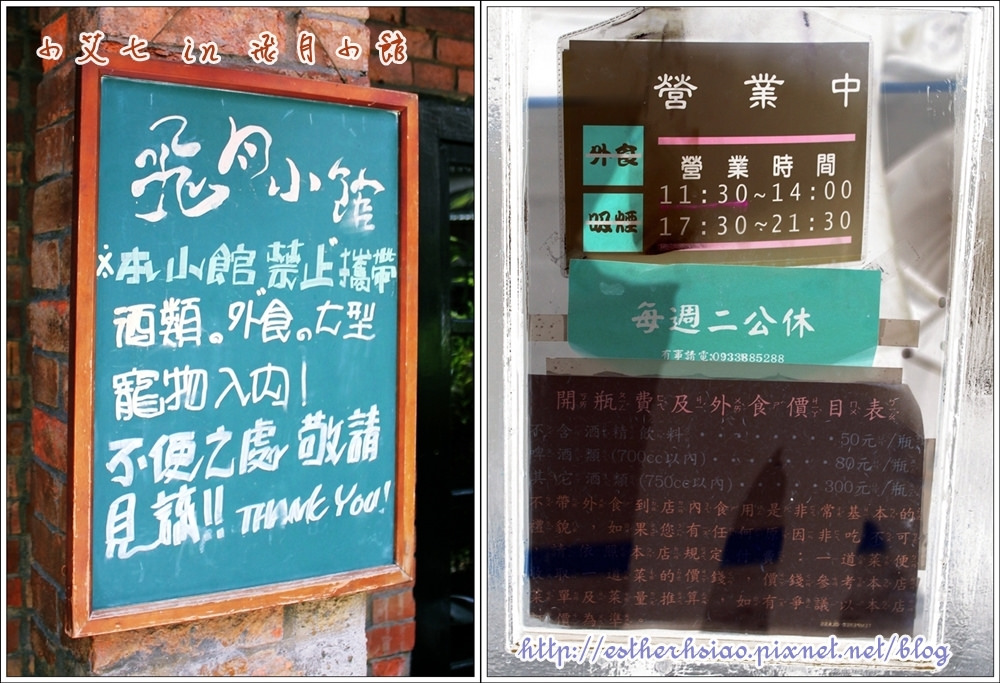 小艾七 in 飛月小館
飛月小館
※本小館禁止攜帶
酒類。外食。大型
寵物入內!
不便之處 敬請
見諒!! THANK YOU!
營業中
外食
吸煙
營業時間
11:30~14:00
17:30~21:30
每週二公休
有事請電:0933885288
開瓶費及外食價目表
不含酒精飲料 50元/瓶
啤酒類(700cc以內) 80元/瓶
其它酒類(750cc以內) 300元/瓶
不帶外食到店內食用是非常基本的
禮貌,如果您有任何原因非吃不可
本店規定 一道菜便
一道菜的價錢,價錢參考本店
菜單及菜量推算,如有爭議以本店
為準
http://estherhsiao.pixnet.net/blog